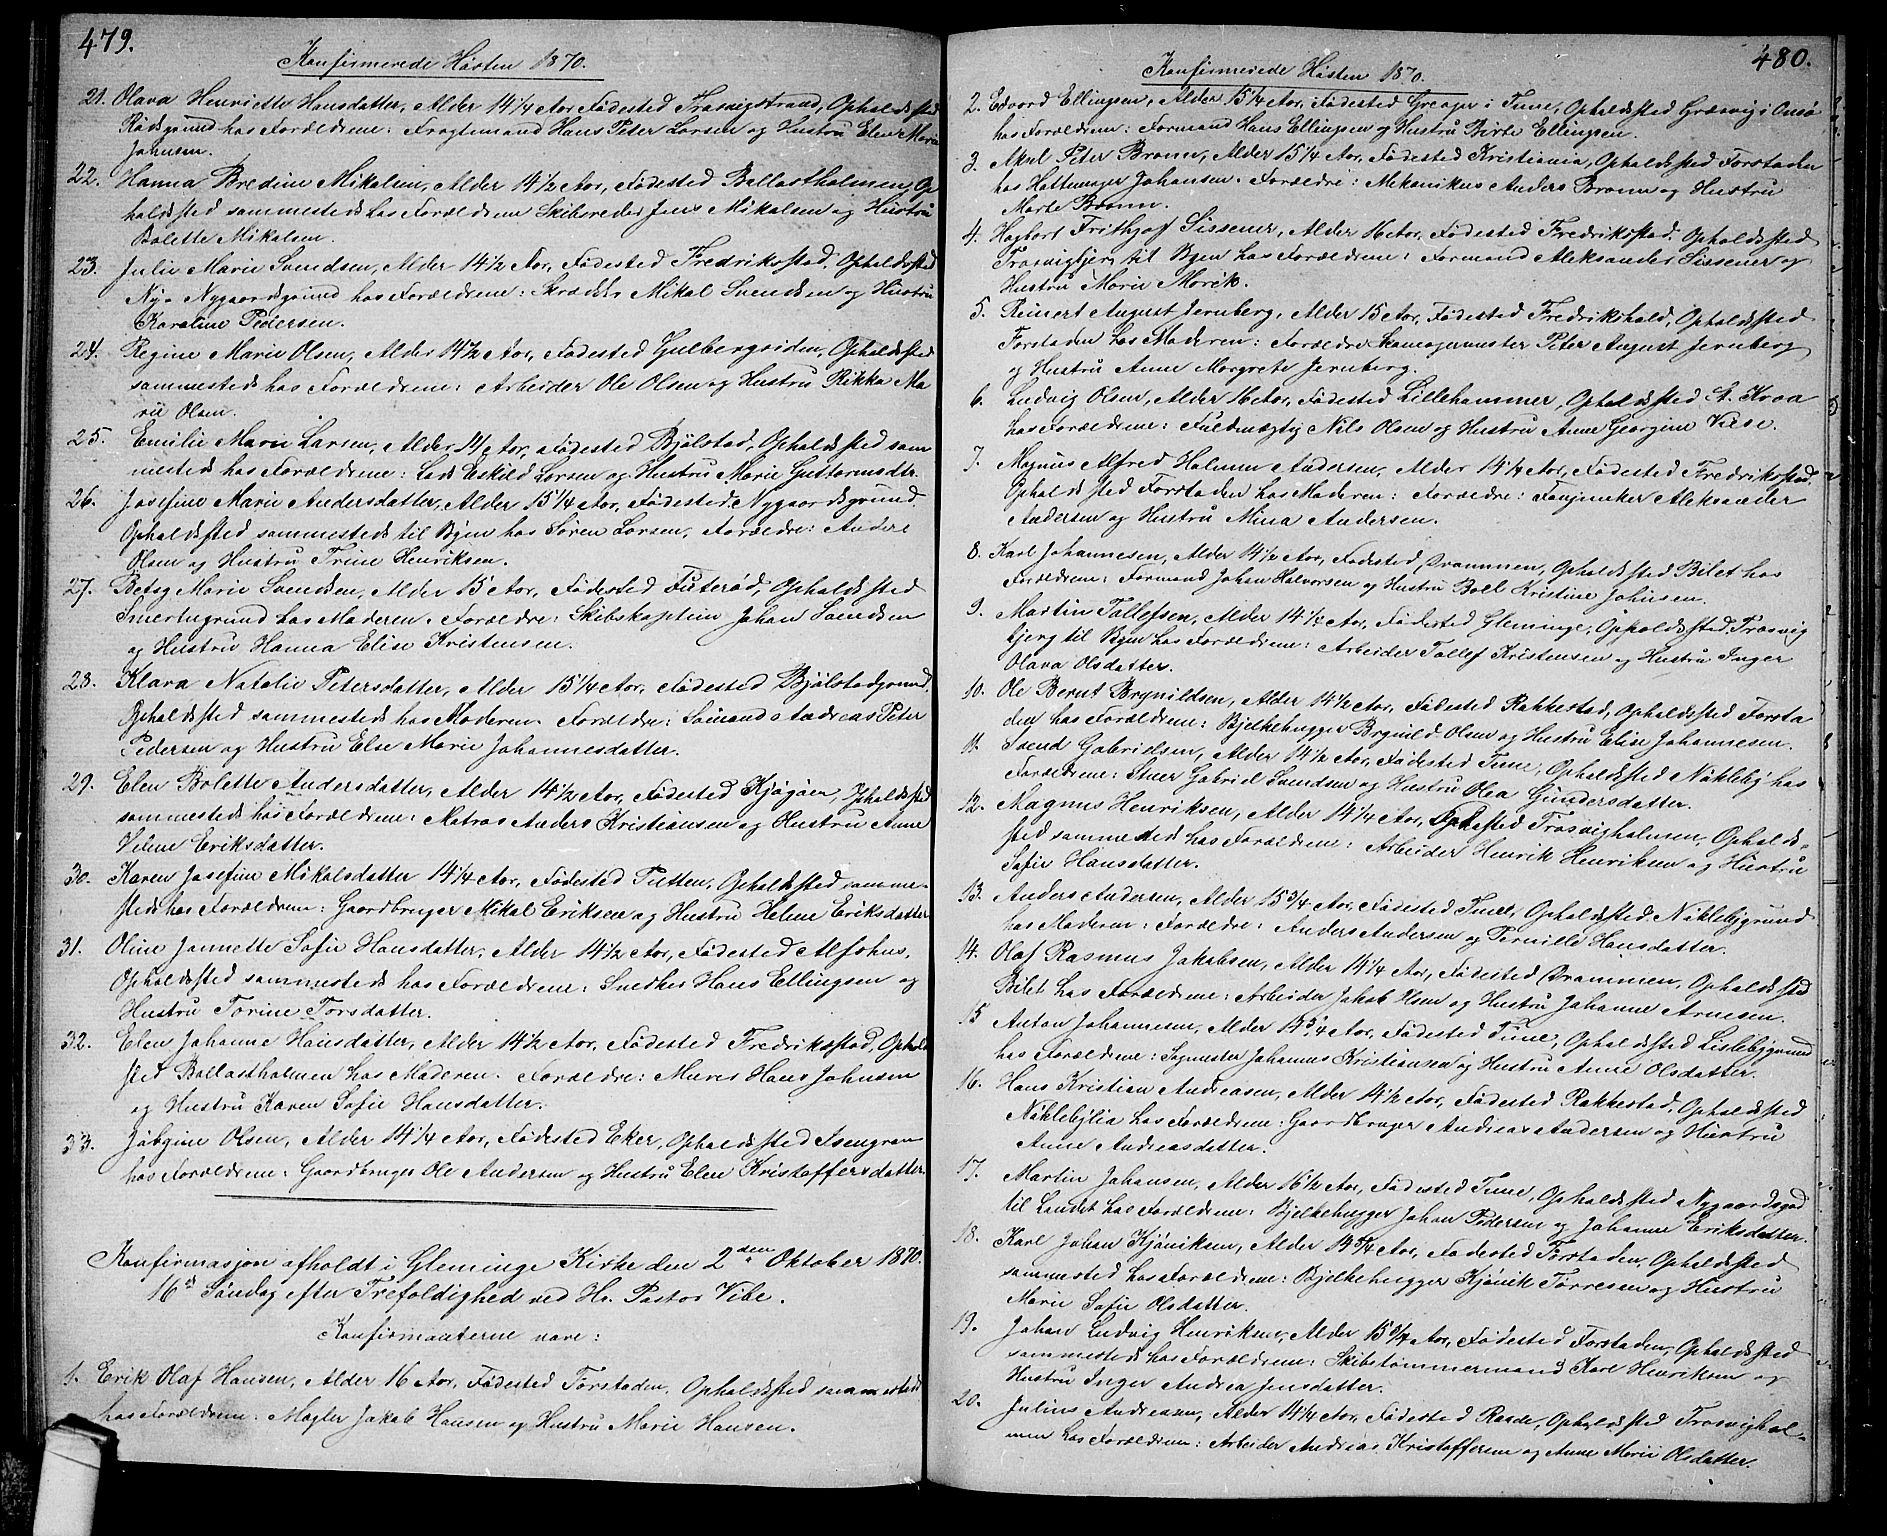 479.
Konfirmerede Hösten 1870.
21. Olava Henriette Hansdatter, Alder 14 1/4 Aar, Födested Trosvigstrand, Opholdssted
Rödsgrund hos Forældrene: Fragtemand Hans Peter Larsen og Hustru Elen Marie
Johnsen.
22. Hanna Bredine Mikalsen, Alder 14 1/2 Aar, Födested Ballastholmen, Op
holdssted sammesteds hos Forældrene Skibsreder Jens Mikalsen og Hustru
Bolette Mikalsen.
23. Julie Marie Svendsen, Alder 14 1/2 Aar, Födested Fredrikstad, Opholdssted
Nye Nygaardsgrund hos Forældrene: Skrædder Mikal Svendsen og Hustru
Karoline Pedersen.
24. Regine Marie Olsen, Alder 14 1/2 Aar, Födested Gulbergsiden, Opholdssted
sammesteds hos Forældrene: Arbeider Ole Olsen og Hustru Rikka Ma
rie Olsen.
25. Emilie Marie Larsen, Alder 14 1/2 Aar, Födested Bjölstad, Opholdssted sam
mesteds hos Forældrene: Lods Eskild Larsen og Hustru Marie Guttormsdtr.
26. Josefine Marie Andersdatter, Alder 15 1/4 Aar, Födested Nygaardsgrund.
Opholdssted sammesteds til Byen hos Sören Larsen, Forældre: Anders
Olsen og Hustru Trine Henriksen.
27. Betsy Marie Svendsen, Alder 15 Aar, Födested Futeröd, Opholdssted
Smertugrund hos Moderen. Forældre: Skibskaptein Johan Svendsen
og Hustru Hanna Elise Kristensen.
28. Klara Natalie Petersdatter, Alder 15 1/4 Aar, Födested Bjölstadgrund,
Opholdssted sammesteds hos Moderen. Forældre: Sömand Andreas Peter
Pedersen og Hustru Else Marie Johannesdatter.
29. Elen Bolette Andersdatter, Alder 14 1/2 Aar, Födested Kjögöen, Opholdssted
sammesteds hos Forældrene: Matros Anders Kristiansen og Hustru Anne
Helene Eriksdatter.
30. Karen Josefine Mikalsdatter 14 1/4 Aar, Födested Tutten, Opholdssted samme-
steds hos Forældrene: Gaardbruger Mikal Eriksen og Hustru Helene Eriksdatter
31. Oline Jannette Sofie Hansdatter, Alder 14 1/2 Aar, Födested Alfohus,
Opholdssted sammesteds hos Forældrene: Snedker Hans Ellingsen og
Hustru Torine Torsdatter.
32. Elen Johanne Hansdatter, Alder 14 1/2 Aar, Födested Fredrikstad, Ophold
sted Ballastholmen hos Moderen. Forældre: Murer Hans Johnsen
og Hustru Karen Sofie Hansdatter.
33. Jöbgine Olsen, Alder 14 1/4 Aar, Födested Eker, Opholdssted Isengran
hos Forældrene: Gaardbruger Ole Andersen og Hustru Elen Kristoffersdatter.
Konfirmasjon afholdt i Gleminge Kirke den 2den Oktober 1870.
16d Söndag efter Trefoldighed ved Hr. Pastor Vibe.
Konfirmanterne vare:
1. Erik Olaf Hansen, Alder 16 Aar, Födested Forstaden, Opholdssted sammesteds
hos Forældrene: Mægler Jakob Hansen og Hustru Marie Hansen.
480.
Konfirmerede Hösten 1870.
2. Edvard Ellingsen, Alder 15 1/4 Aar, Födested Greager i Tune, Opholdssted Græsvig i Onsö
hos Forældrene: Formand Hans Ellingsen og Hustru Birte Ellingsen.
3. Aksel Peter Bronn, Alder 15 1/4 Aar, Födested Kristiania, Opholdssted Forstaden
hos Hattemager Johansen. Forældre: Mekanikus Anders Bronn og Hustru
Marte Bronn.
4. Hagbart Frithjof Sissener, Alder 16 Aar, Födested Fredrikstad, Opholdssted
Trosvigbjerg til Byen hos Forældrene: Formand Aleksander Sissener og
Hustru Marie Mörck.
5. Reinert August Jernberg, Alder 15 Aar, Födested Fredrikshald, Opholdssted
Forstaden hos Moderen: Forældre Skomagermester Peter August Jernberg
og Hustru Anne Margrete Jernberg.
6. Ludvig Olsen, Alder 16 Aar, Födested Lillehammer, Opholdssted St. Kroa
hos Forældrene: Fuldmægtig Nils Olsen og Hustru Anne Georgine Viese.
7. Magnus Alfred Holmen Andersen, Alder 14 1/4 Aar, Födested Fredrikstad,
Opholdssted Forstaden hos Moderen: Forældre: Aleksander
Andersen og Hustru Mina Andersen.
8. Karl Johannesen, Alder 14 1/2 Aar, Födested Drammen, Opholdssted Bilet hos
Forældrene: Formand Johan Halvorsen og Hustru Boel Kristine Johnsen.
9. Martin Tollefsen, Alder 14 1/4 Aar, Födested Gleminge, Opholdssted Trosvig
bjerg til Byen hos Forældrene: Arbeider Tollef Kristensen og Hustru Inger
Olava Olsdatter.
10. Ole Bernt Brynildsen, Alder 14 1/2 Aar, Födested Rakkestad, Opholdssted Forsta
den hos Forældrene: Bjelkehugger Brynild Olsen og Hustru Elise Johannesen.
11. Svend Gabrielsen, Alder 14 1/2 Aar, Födested Tune, Opholdssted Nökleby hos
Forældrene: Stuer Gabriel Svendsen og Hustru Olea Gundersdatter.
12. Magnus Henriksen, Alder 14 1/4 Aar, Födested Trosvigholmen, Opholds-
sted sammested hos Forældrene: Arbeider Henrik Henriksen og Hustru
Sofie Hansdatter.
13. Anders Andersen, Alder 15 3/4 Aar, Födested Tune, Opholdssted Nöklebygrund
hos Moderen: Forældre: Anders Andersen og Pernille Hansdatter.
14. Olaf Rasmus Jakobsen, Alder 14 1/4 Aar, Födested Drammen, Opholdssted
Bilet hos Forældrene: Arbeider Jakob Olsen og Hustru Johanne Arnesen.
15 Anton Johannesen, Alder 14 3/4 Aar, Födested Tune, Opholdssted Lislebygrund
hos Forældrene: Sagmester Johannes Kristiansen og Hustru Anne Olsdatter.
16. Hans Kristian Andreasen, Alder 14 1/2 Aar, Födested Rakkestad, Opholdssted
Nöklebylia hos Forældrene: Gaardbruger Andreas Andersen og Hustru
Anne Andreasdatter.
17. Martin Johansen, Alder 16 1/2 Aar, Födested Tune, Opholdssted Nygaardsgad
til Landet hos Forældrene: Bjelkehugger Johan Pedersen og Johanne Eriksdatter.
18. Karl Johan Kjöniksen, Alder 14 3/4 Aar, Födested Forstaden, Opholdssted
sammested hos Forældrene: Bjelkehugger Kjönik Torresen og Hustru
Marie Sofie Olsdatter.
19. Johan Ludvig Henriksen, Alder 15 3/4 Aar, Födested Forstaden, Opholdssted
sammesteds hos Forældrene: Skibstömmermand Karl Henriksen og
Hustru Inger Andrea Jensdatter.
20. Julius Andreasen, Alder 14 1/4 Aar, Födested Raade, Opholdssted Trosvighol-
men hos Forældrene: Arbeider Andreas Kristoffersen og Anne Marie Olsdatter.